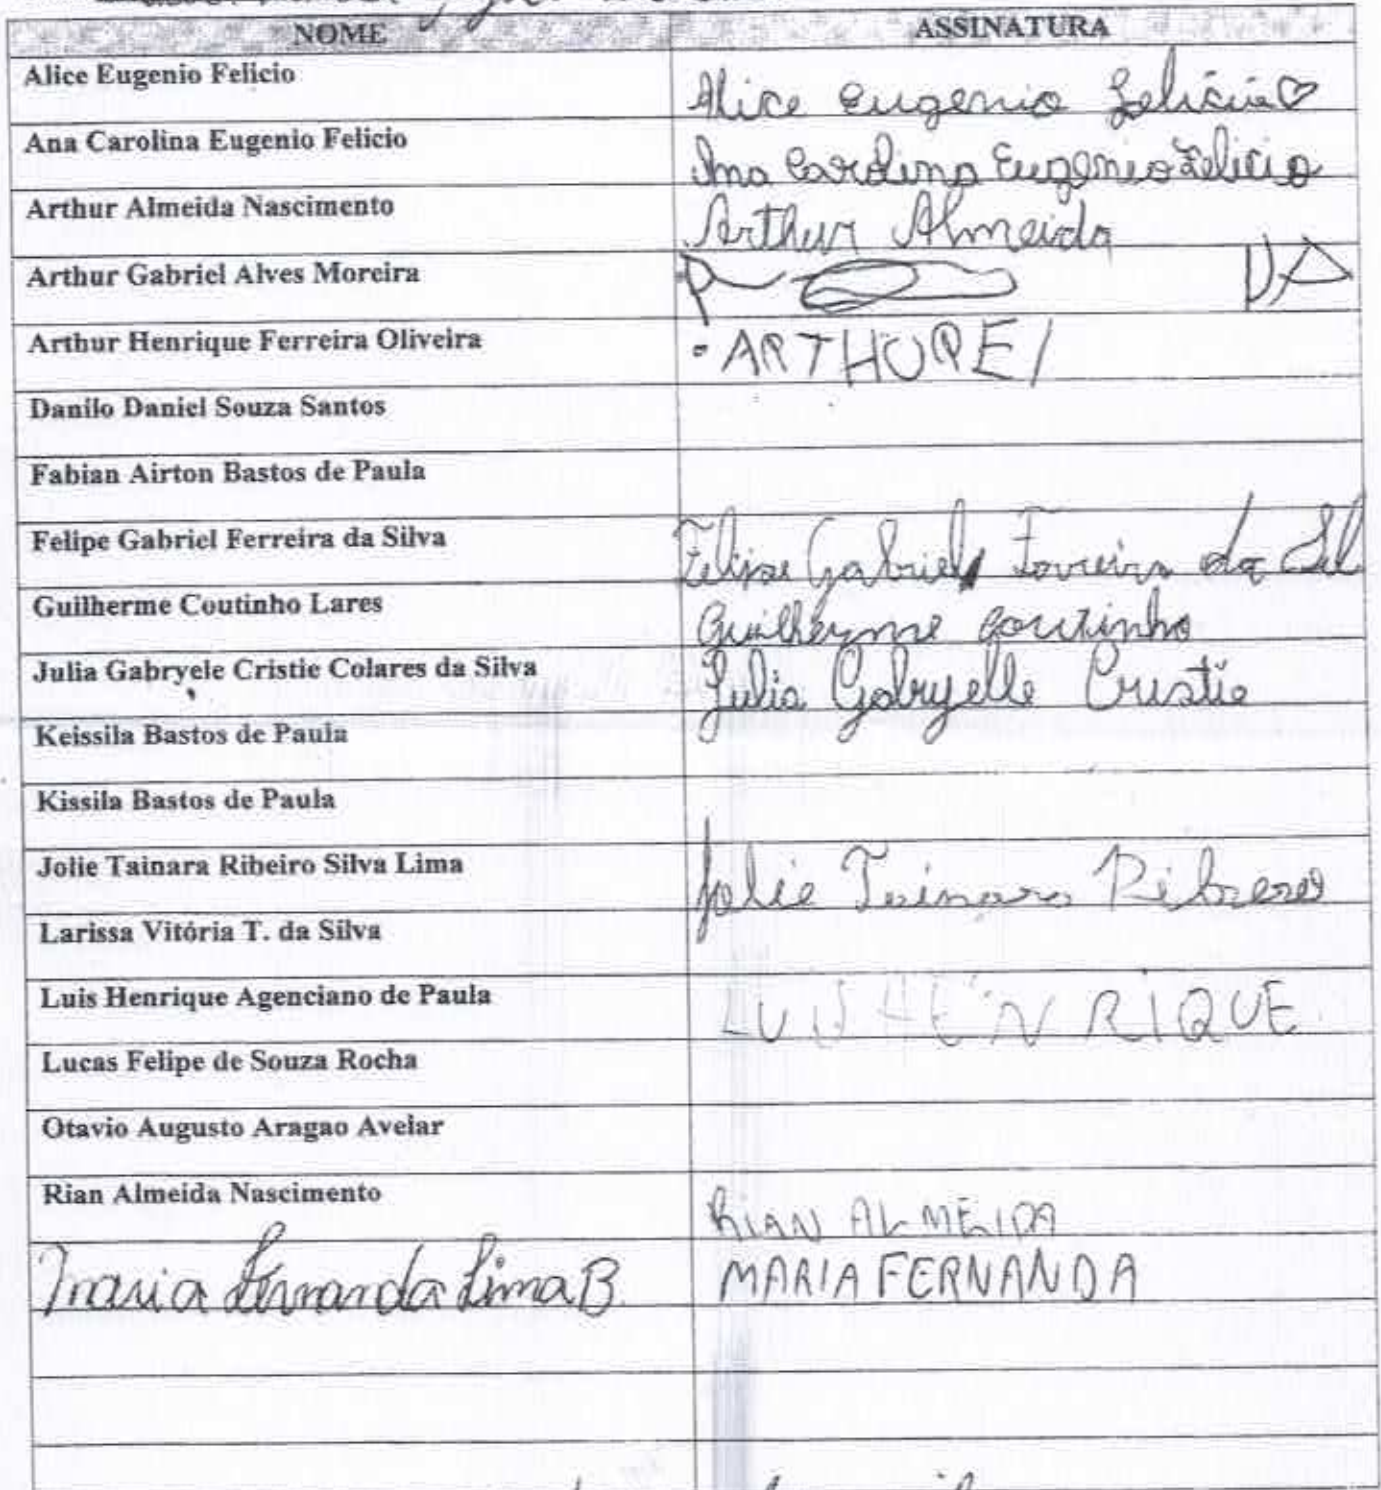 NOME ASSINATURA
Alice Eugenio Felicio Alice Eugenio Felicio
Ana Carolina Eugenio Felicio Ana Carolina Eugenio Felicio
Arthur Almeida Nascimento Arthur Almeida
Arthur Gabriel Alves Moreira
Arthur Henrique Ferreira Oliveira ARTHUR
Danilo Daniel Souza Santos
Fabian Airton Bastos de Paula
Felipe Gabriel Ferreira da Silva Felipe Gabriel Ferreira da Sil
Guilherme Coutinho Lares Guilherme Coutinho
Julia Gabryele Cristie Colares da Silva Julia Gabryelle Cristie
Keissila Bastos de Paula
Kissila Bastos de Paula
Jolie Tainara Ribeiro Silva Lima Jolie Tainara
Larissa Vitória T. da Silva
Luis Henrique Agenciano de Paula LUIS HENRIQUE
Lucas Felipe de Souza Rocha
Otavio Augusto Aragao Avelar
Rian Almeida Nascimento RIAN ALMEIDA
Maria Fernanda Lima B. MARIA FERNANDA